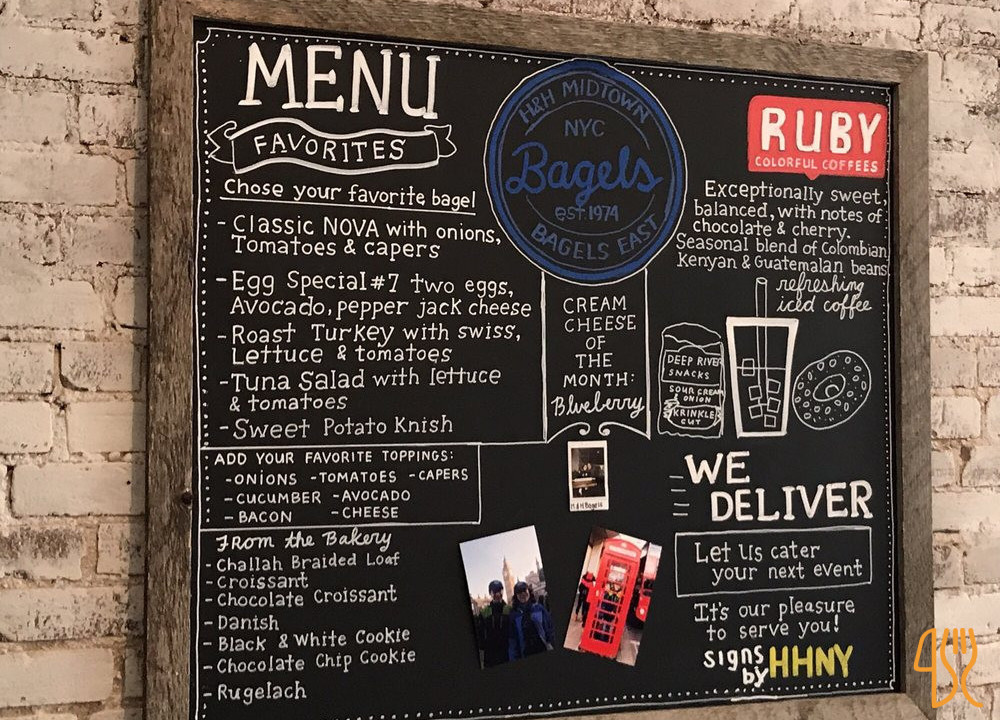 MENU
FAVORITES
Chose your favorite bagel
- Classic NOVA with onions,
Tomatoes & capers
- Egg Special #7 two eggs,
Avocado, pepper jack cheese
- Roast Turkey with swiss,
Lettuce & tomatoes
- Tuna Salad with lettuce
& tomatoes
- Sweet Potato Knish
ADD YOUR FAVORITE TOPPINGS:
- ONIONS - TOMATOES - CAPERS
- CUCUMBER - AVOCADO
- BACON - CHEESE
From the Bakery
- Challah Braided Loaf
- Croissant
- Chocolate Croissant
- Danish
- Black & White Cookie
- Chocolate Chip Cookie
- Rugelach
H&H MIDTOWN
NYC
Bagels
est 1974
BAGELS EAST
CREAM
CHEESE
OF
THE
MONTH:
Blueberry
H&H Bagels
RUBY
COLORFUL COFFEES
Exceptionally sweet,
balanced, with notes of
chocolate & cherry.
Seasonal blend of Colombian
Kenyan & Guatemalan beans
refreshing
iced coffee
DEEP RIVER
SNACKS
SOUR CREAM
& ONION
KRINKLE
CUT
WE
DELIVER
Let us cater
your next event
It's our pleasure
to serve you!
signs
by HHNY